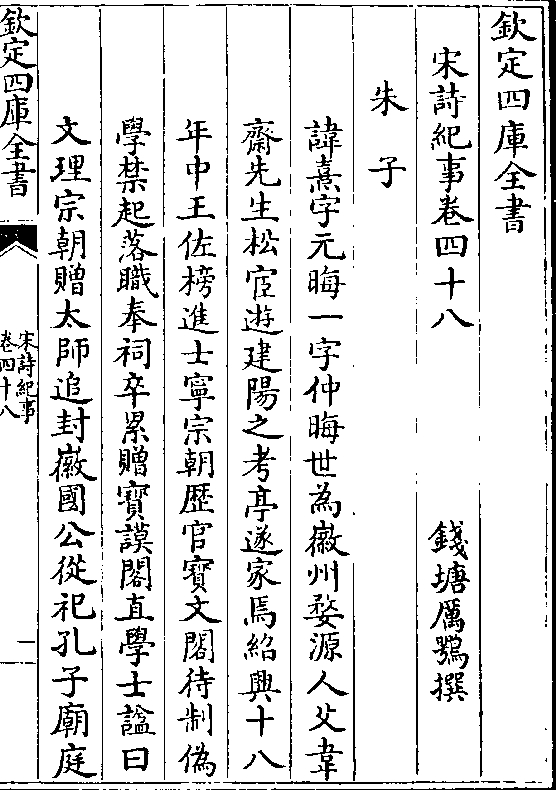 欽定四庫全書
宋詩紀事卷四十八
錢塘厲鶚撰
朱子
諱熹字元晦一字仲晦世為徽州婺源人父韋
齋先生松宦遊建陽之考亭遂家焉紹興十八
年中王佐榜進士寧宗朝歴官寶文閣待制偽
學禁起落職奉祠卒累贈寶謨閣直學士諡曰
文理宗朝贈太師追封徽國公從祀孔子廟庭
欽定四庫全書
宋詩紀事
卷四十八
一